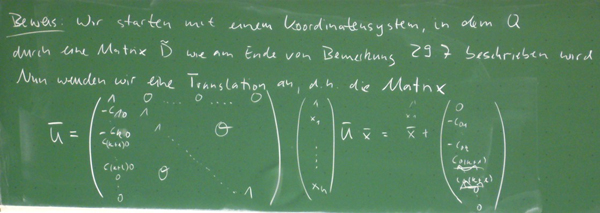 Beweis: Wir starten mit einem Koordinatensystem, in dem Q
durch eine Matrix B̃ wie am Ende von Bemerkung 29.7 beschrieben wird
Nun wenden wir eine Translation an, d.h. die Matrix
Ū = ( 1 0 ..... 0
-C10 1
-Ck0 0
C(k+1)0
C(k+1)0 0
0
0 1 ) ( 1 x1 ⋮ xn ) Ū x̄ = x̄ + ( 0 -C01 -C0k 0 )